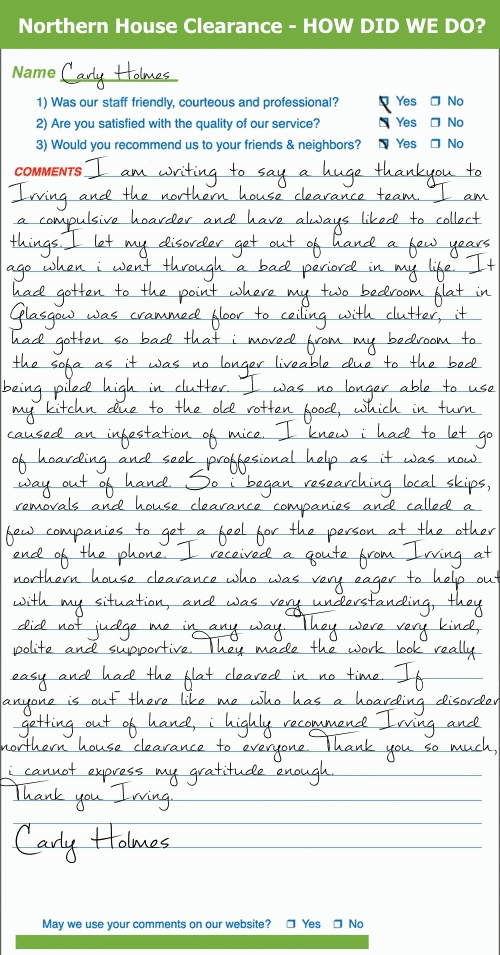 Northern House Clearance - HOW DID WE DO?
Name Carly Holmes
1) Was our staff friendly, courteous and professional? Yes No
2) Are you satisfied with the quality of our service? Yes No
3) Would you recommend us to your friends & neighbors? Yes No
COMMENTS I am writing to say a huge thankyou to
Irving and the northern house clearance team. I am
a compulsive hoarder and have always liked to collect
things. I let my disorder get out of hand a few years
ago when i went through a bad periord in my life. It
had gotten to the point where my two bedroom flat in
Glasgow was crammed floor to ceiling with clutter, it
had gotten so bad that i moved from my bedroom to
the sofa as it was no longer liveable due to the bed
being piled high in clutter. I was no longer able to use
my kitchn due to the old rotten food, which in turn
caused an infestation of mice. I knew i had to let go
of hoarding and seek proffesional help as it was now
way out of hand. So i began researching local skips,
removals and house clearance companies and called a
few companies to get a feel for the person at the other
end of the phone. I received a qoute from Irving at
northern house clearance who was very eager to help out
with my situation, and was very understanding, they
did not judge me in any way. They were very kind,
polite and supportive. They made the work look really
easy and had the flat cleared in no time. If
anyone is out there like me who has a hoarding disorder
getting out of hand, i highly recommend Irving and
northern house clearance to everyone. Thank you so much,
i cannot express my gratitude enough.
Thank you Irving.
Carly Holmes
May we use your comments on our website? Yes No